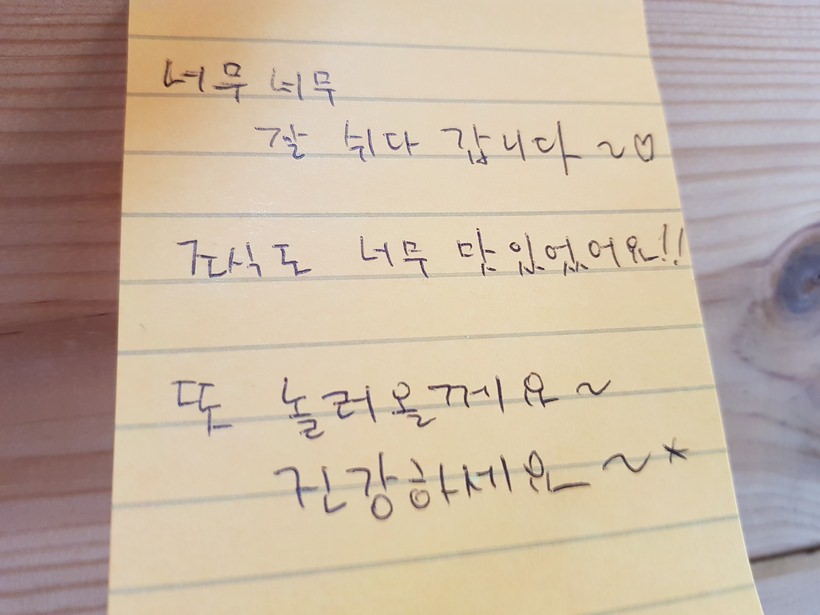 너무 너무
잘 쉬다 갑니다 ~♡
조식도 너무 맛있었어요!!
또 놀러올께요~
건강하세요~*